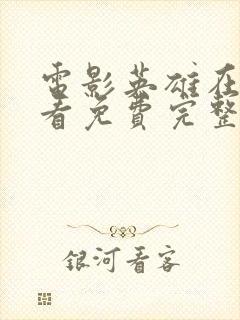 電影英雄在
看免費完整
銀河看客